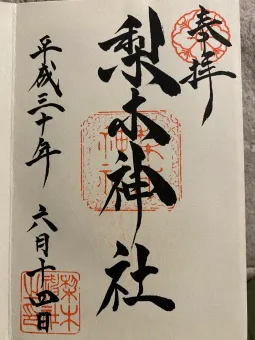 奉拝
梨木神社
平成三十年 六月十四日